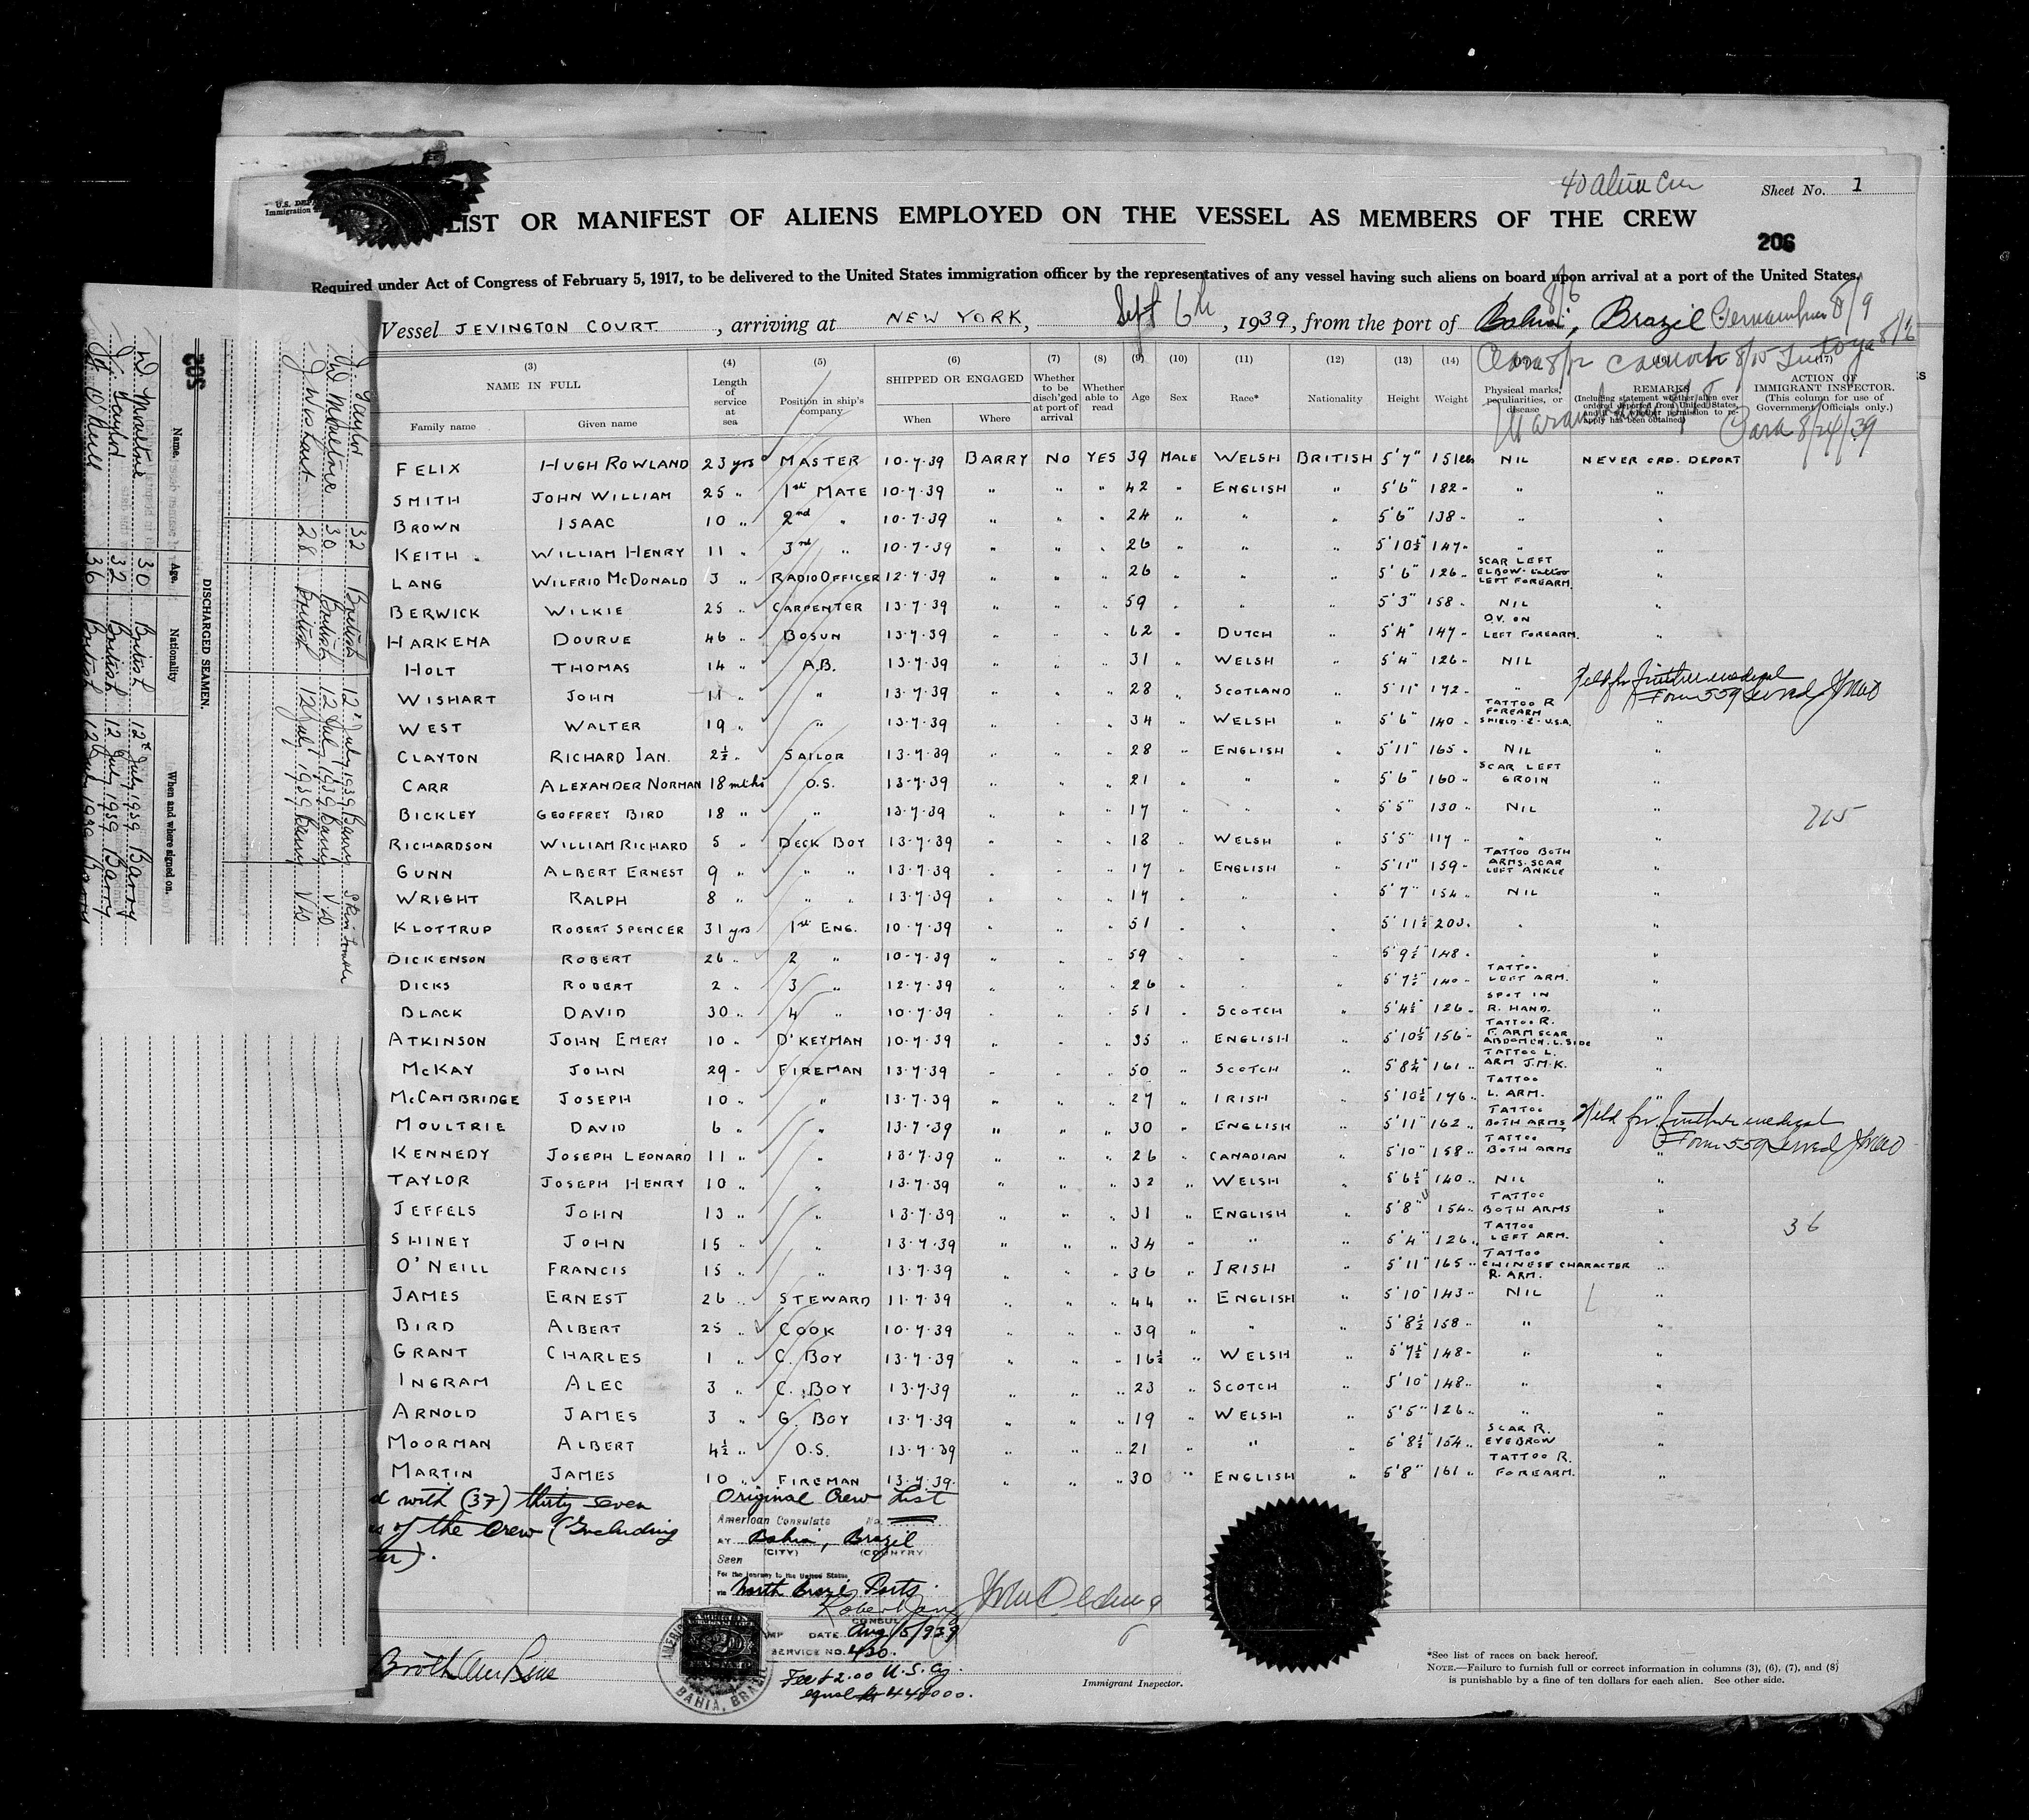 40 alien
Sheet No. 1
U.S. DEP
Immigration
LIST OR MANIFEST OF ALIENS EMPLOYED ON THE VESSEL AS MEMBERS OF THE CREW
206
Required under Act of Congress of February 5, 1917, to be delivered to the United States immigration officer by the representatives of any vessel having such aliens on board upon arrival at a port of the United States.
Vessel JEVINGTON COURT, arriving at NEW YORK, Sept 6th, 1939, from the port of Bahia, Brazil 8/6 8/9
8/15
Para 8/24/39
(3) (4) (5) (6) (7) (8) (9) (10) (11) (12) (13) (14) (17)
NAME IN FULL Family name Given name Length of service at sea Position in ship's company SHIPPED OR ENGAGED When Where Whether to be disch'ged at port of arrival Whether able to read Age Sex Race* Nationality Height Weight Physical marks, peculiarities, or disease REMARKS (Including statement whether alien ever ordered deported from United States, and if so whether permission to reapply has been obtained) ACTION OF IMMIGRANT INSPECTOR. (This column for use of Government Officials only.)
FELIX HUGH ROWLAND 23 yrs MASTER 10-7-39 BARRY NO YES 39 MALE WELSH BRITISH 5'7" 151 lbs NIL NEVER ORD. DEPORT
SMITH JOHN WILLIAM 25 " 1st MATE 10-7-39 " " " 42 " ENGLISH " 5'6" 182 " " "
BROWN ISAAC 10 " 2nd " 10-7-39 " " " 24 " " " 5'6" 138 " " "
KEITH WILLIAM HENRY 11 " 3rd " 10-7-39 " " " 26 " " " 5'10½" 147 " " "
LANG WILFRID McDONALD 3 " RADIO OFFICER 12-7-39 " " " 26 " " " 5'6" 126 " SCAR LEFT ELBOW. tattoo LEFT FOREARM "
BERWICK WILKIE 25 " CARPENTER 13-7-39 " " " 59 " " " 5'3" 158 " NIL "
HARKEMA DOURUE 46 " BOSUN 13-7-39 " " " 62 " DUTCH " 5'4" 147 " D.V. ON LEFT FOREARM. "
HOLT THOMAS 14 " A.B. 13-7-39 " " " 31 " WELSH " 5'4" 126 " NIL "
WISHART JOHN 11 " " 13-7-39 " " " 28 " SCOTLAND " 5'11" 172 " " Held for further medical Form 559 served
WEST WALTER 19 " " 13-7-39 " " " 34 " WELSH " 5'6" 140 " TATTOO R FOREARM SHIELD-Z-U.S.A. "
CLAYTON RICHARD IAN. 2½ " SAILOR 13-7-39 " " " 28 " ENGLISH " 5'11" 165 " NIL "
CARR ALEXANDER NORMAN 18 mths O.S. 13-7-39 " " " 21 " " " 5'6" 160 " SCAR LEFT GROIN "
BICKLEY GEOFFREY BIRD 18 " " 13-7-39 " " " 17 " " " 5'5" 130 " NIL "
RICHARDSON WILLIAM RICHARD 5 " DECK BOY 13-7-39 " " " 18 " WELSH " 5'5" 117 " " "
GUNN ALBERT ERNEST 9 " " " 13-7-39 " " " 17 " ENGLISH " 5'11" 159 " TATTOO BOTH ARMS. SCAR LEFT ANKLE "
WRIGHT RALPH 8 " " " 13-7-39 " " " 17 " " " 5'7" 154 " NIL "
KLOTTRUP ROBERT SPENCER 31 yrs 1st ENG. 10-7-39 " " " 51 " " " 5'11½" 203 " " "
DICKENSON ROBERT 26 " 2 " 10-7-39 " " " 59 " " " 5'9½" 148 " " "
DICKS ROBERT 2 " 3 " 12-7-39 " " " 26 " " " 5'7½" 140 " TATTOO LEFT ARM. "
BLACK DAVID 30 " 4 " 10-7-39 " " " 51 " SCOTCH " 5'4½" 126 " SPOT IN R. HAND. "
ATKINSON JOHN EMERY 10 " D'KEYMAN 10-7-39 " " " 35 " ENGLISH " 5'10½" 156 " TATTOO R. F. ARM SCAR ABDOMEN. L. SIDE "
McKAY JOHN 29 " FIREMAN 13-7-39 " " " 50 " SCOTCH " 5'8½" 161 " TATTOO L. ARM J.M.K. "
McCAMBRIDGE JOSEPH 10 " " 13-7-39 " " " 27 " IRISH " 5'10½" 176 " TATTOO L. ARM. "
MOULTRIE DAVID 6 " " 13-7-39 " " " 30 " ENGLISH " 5'11" 162 " TATTOO BOTH ARMS Held for further medical Form 559 served
KENNEDY JOSEPH LEONARD 11 " " 13-7-39 " " " 26 " CANADIAN " 5'10" 158 " TATTOO BOTH ARMS "
TAYLOR JOSEPH HENRY 10 " " 13-7-39 " " " 32 " WELSH " 5'6½" 140 " NIL "
JEFFELS JOHN 13 " " 13-7-39 " " " 31 " ENGLISH " 5'8" 154 " TATTOO BOTH ARMS "
SHINEY JOHN 15 " " 13-7-39 " " " 34 " " " 5'4" 126 " TATTOO LEFT ARM. " 36
O'NEILL FRANCIS 15 " " 13-7-39 " " " 36 " IRISH " 5'11" 165 " TATTOO CHINESE CHARACTER R. ARM. "
JAMES ERNEST 26 " STEWARD 11-7-39 " " " 44 " ENGLISH " 5'10" 143 " NIL "
BIRD ALBERT 25 " COOK 10-7-39 " " " 39 " " " 5'8½" 158 " " "
GRANT CHARLES 1 " C. BOY 13-7-39 " " " 16½ " WELSH " 5'7½" 148 " " "
INGRAM ALEC 3 " C. BOY 13-7-39 " " " 23 " SCOTCH " 5'10" 148 " " "
ARNOLD JAMES 3 " G. BOY 13-7-39 " " " 19 " WELSH " 5'5" 126 " " "
MOORMAN ALBERT 4½ " O.S. 13-7-39 " " " 21 " " " 5'8½" 154 " SCAR R. EYEBROW "
MARTIN JAMES 10 " FIREMAN 13-7-39 " " " 30 " ENGLISH " 5'8" 161 " TATTOO R. FOREARM. "
d with (37) thirty seven
s of the Crew (Including
ter).
Original Crew List
American Consulate No.
AT Bahia, Brazil
(CITY) (COUNTRY)
Seen
For the journey to the United States
via North Brazil Ports.
CONSUL
DATE Aug 5/939
SERVICE NO. 430.
Fee $2.00 U.S. Cy.
equal
BAHIA, BRAZIL
Immigrant Inspector.
*See list of races on back hereof.
NOTE.—Failure to furnish full or correct information in columns (3), (6), (7), and (8)
is punishable by a fine of ten dollars for each alien. See other side.
205
DISCHARGED SEAMEN.
Name. Age. Nationality When and where signed on.
D Moultrie 30 British 12th July 1939 Barry
J. Taylor 32 British 12 July 1939 Barry
O'Neill 36 British 12 July 1939 Barry
Taylor 32 British 12th July 1939 Barry Skin
D Moultrie 30 British 12 July 1939 Barry VD
J Wishart 28 British 12 July 1939 Barry VD